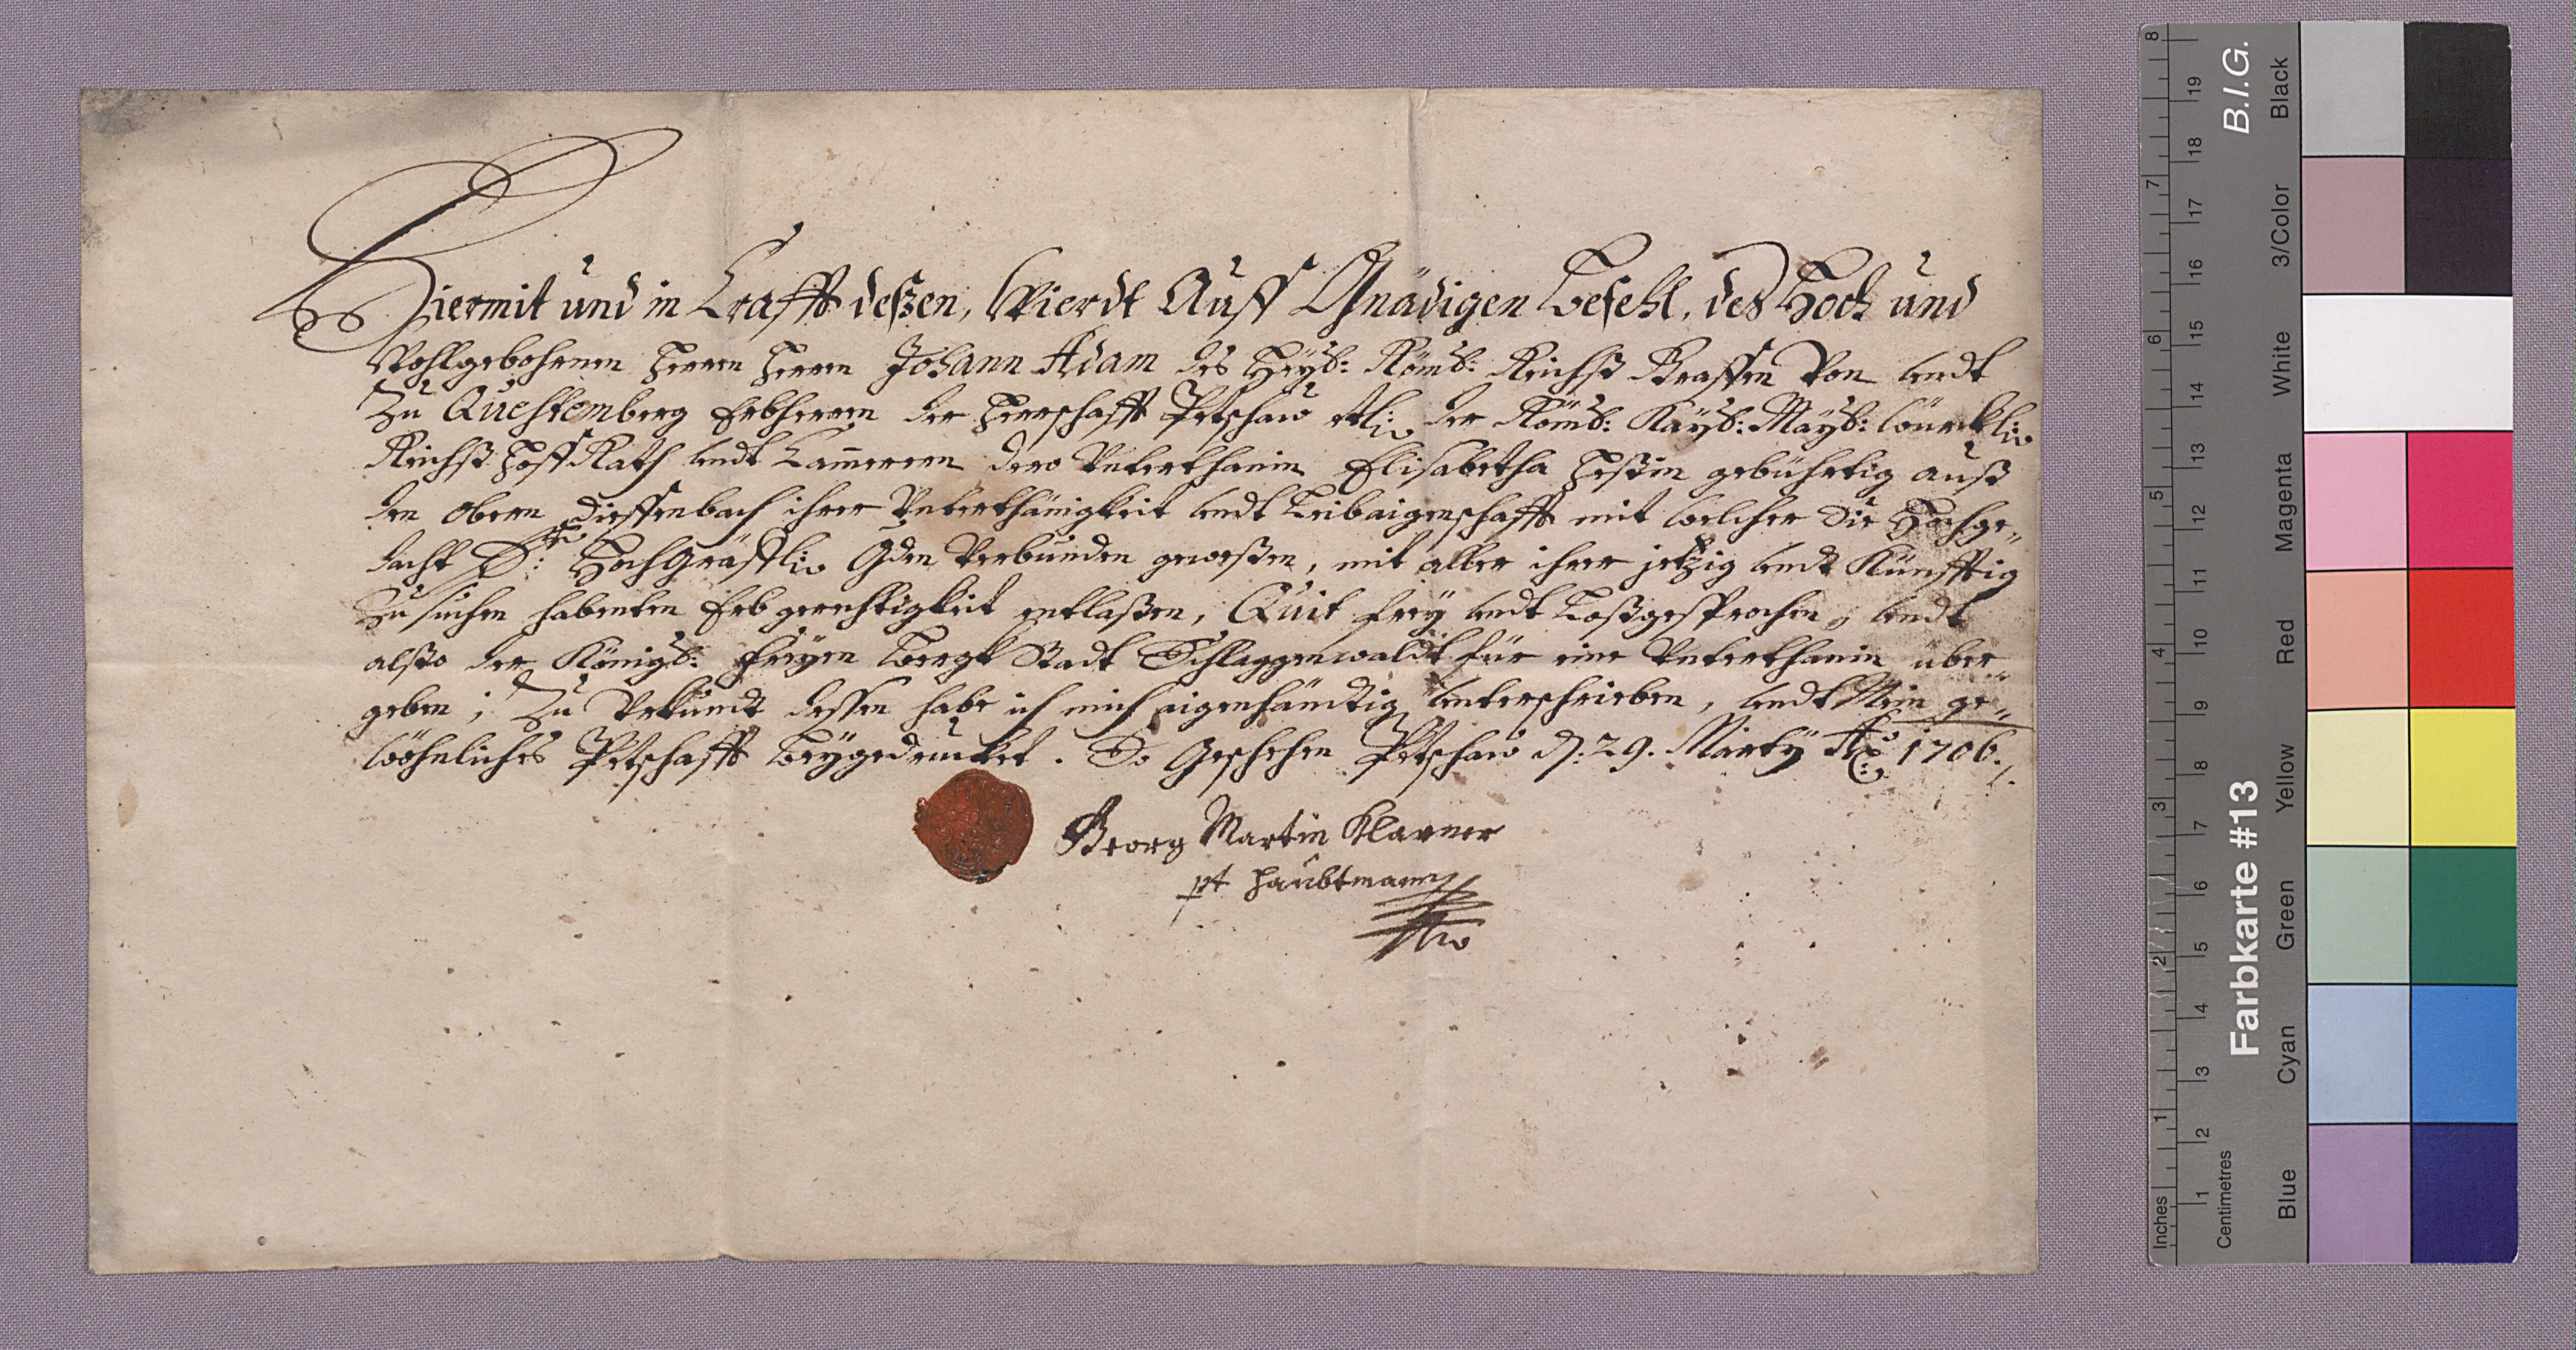 Hiermit und in Crafft deßen, Wierdt Auff Gnädigen befehl, des Hoch und
Wohlgebohrnen Herrn Herrn Johann Adam des Heyl: Röml: Reichß Graffen Von undt
Zu Questemberg Erbherrn der Herrschafft Petschau der Röml: Kayl: Mayl: würckli:
Reichß Hoff Rath undt Cammerern dero Unterthanin Elisabetha Heßin gebührtig auß
den obern Dieffenbach ihrer Unterthänigkeit undt Leibaigenschafft mit welcher die Hochge„
dacht Hochgräffli: Gden Verbunden geweßen, mit aller ihrer jetzig undt Künfftig
Zu suchen habenten Erbgerechtigkeit entlaßen, Quit frey undt Loßgesprochen, undt
alßo der Königl: freyen Bergk Stadt Schlaggenwaldt für eine Unterthanin über„
geben; Zu Uhrkundt dessen habe ich mich aigenhändtig unterschrieben, undt Mein ge„
wöhnliches Petschafft beygedrucket. So Geschehen Petschau d: 29. Marty Ao 1706.
Georg Martin Klauner
pt Haubtmann
Inches
Centimetres
1 2 3 4 5 6 7 8
1 2 3 4 5 6 7 8 9 10 11 12 13 14 15 16 17 18 19
Farbkarte #13
B.I.G.
Blue
Cyan
Green
Yellow
Red
Magenta
White
3/Color
Black